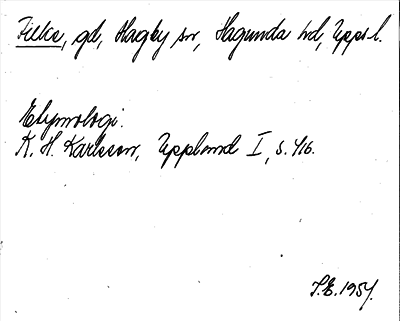 Fiecke, gd, Hagby sn, Hagunda hd, Uppl.
Etymologi.
K. H. Karlsson, Uppland I, s. 416.
S.E. 1954.